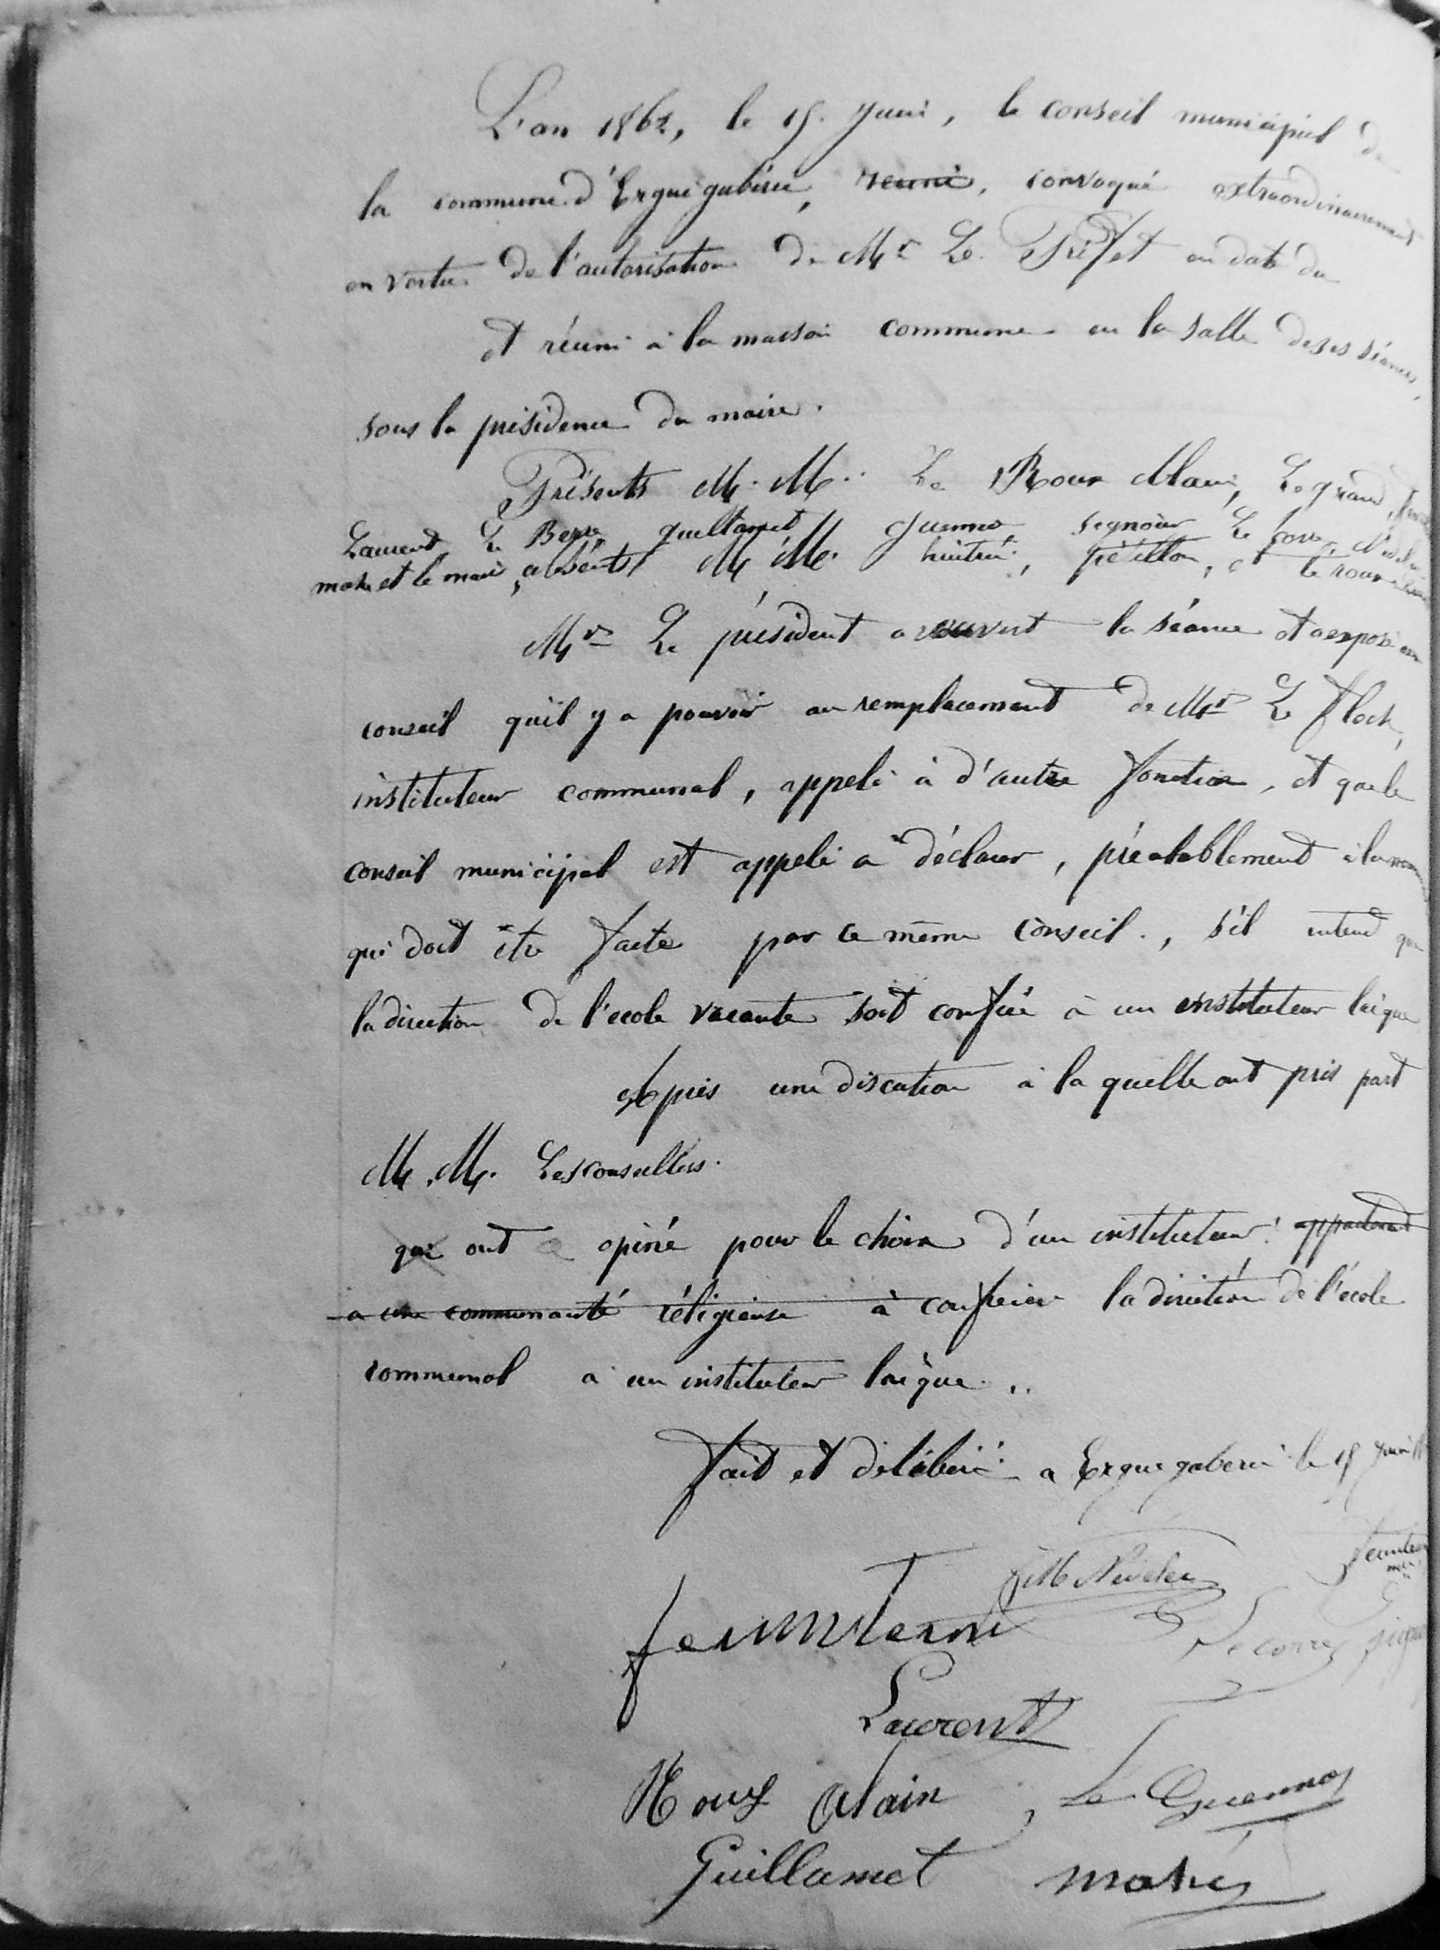 L'an 1862, le 15 Juin, le conseil municipal de
la commune d'Ergué gabéric, reuni, convoqué extraordinairement
en vertu de l'autorisation de Mr Le Préfet en date du
et réuni à la maison commune en la salle de ses séances,
sous la présidence du maire.
Présents M. M. Le Roux Alain, Le grand,
Laurent Le Berre guillamet guenno Segnour Le Corre
mahé et le maire, absents M M.
Mr Le président a ouvert la séance et a exposé au
conseil qu'il y a pouvoir au remplacement de Mr Le Floch,
instituteur communal, appelé à d'autre fonction, et que le
conseil municipal est appelé a déclarer, préalablement à la
qui doit être faite par ce même conseil, s'il entend que
la direction de l'ecole vacante soit confiée à un instituteur laïque
Après une discution à la quelle ont pris part
M. M. Les conseillers.
qui ont opiné pour le choix d'un instituteur appartenant
a une communauté réligieuse à confier la direction de l'école
communal a un instituteur laïque.
fait et délibéré a Ergue gaberic le 15 Juin
Le corre
Laurent
Rouz Alain Le Guennou
Guillamet mahé